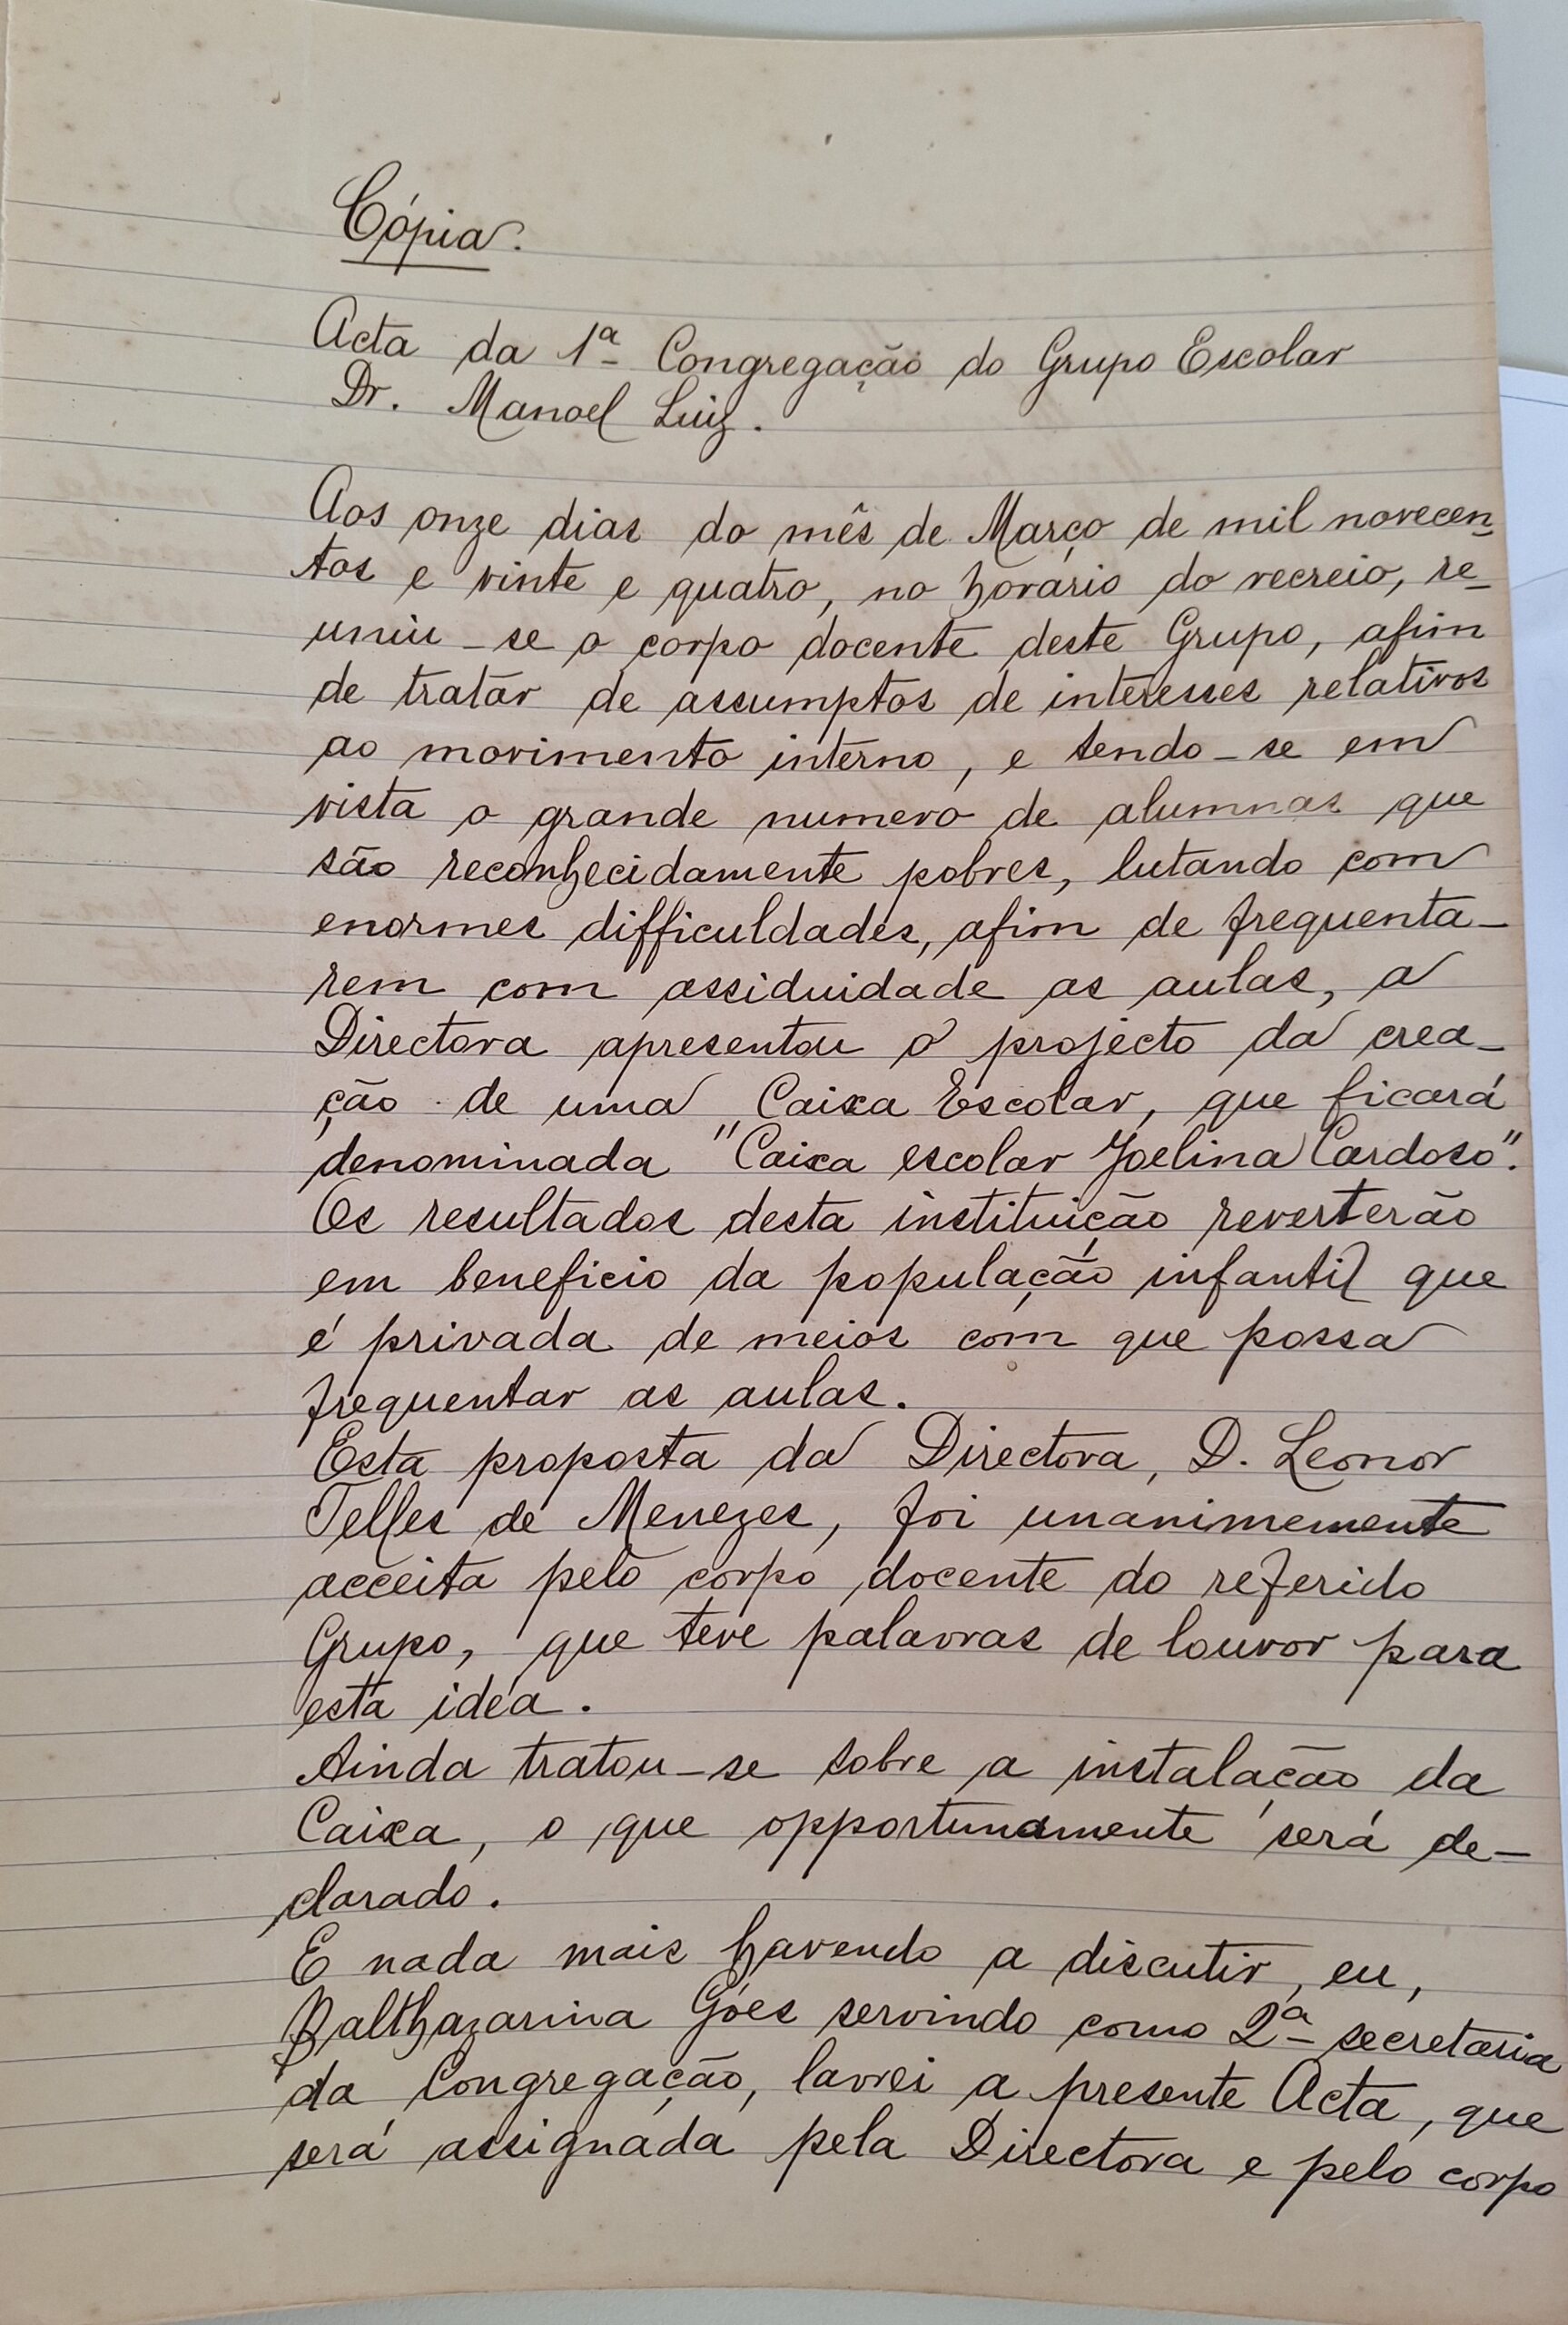 Cópia.
Acta da 1ª Congregação do Grupo Escolar
Dr. Manoel Luiz.
Aos onze dias do mês de Março de mil novecen-
tos e vinte e quatro, no horário do recreio, re-
uniu-se o corpo docente deste Grupo, afim
de tratar de assumptos de interesses relativos
ao movimento interno, e tendo-se em
vista o grande numero de alumnas que
são reconhecidamente pobres, lutando com
enormes difficuldades, afim de frequenta-
rem com assiduidade as aulas, a
Directora apresentou o projecto da crea-
ção de uma Caixa Escolar, que ficará
denominada "Caixa escolar Joelina Cardoso".
Os resultados desta instituição reverterão
em beneficio da população infantil que
é privada de meios com que possa
frequentar as aulas.
Esta proposta da Directora, D. Leonor
Telles de Menezes, foi unanimemente
acceita pelo corpo docente do referido
Grupo, que teve palavras de louvor para
esta idéa.
Ainda tratou-se sobre a instalação da
Caixa, o que opportunamente será de-
clarado.
E nada mais havendo a discutir, eu,
Balthazarina Góes servindo como 2ª secretaria
da Congregação, lavrei a presente Acta, que
será assignada pela Directora e pelo corpo